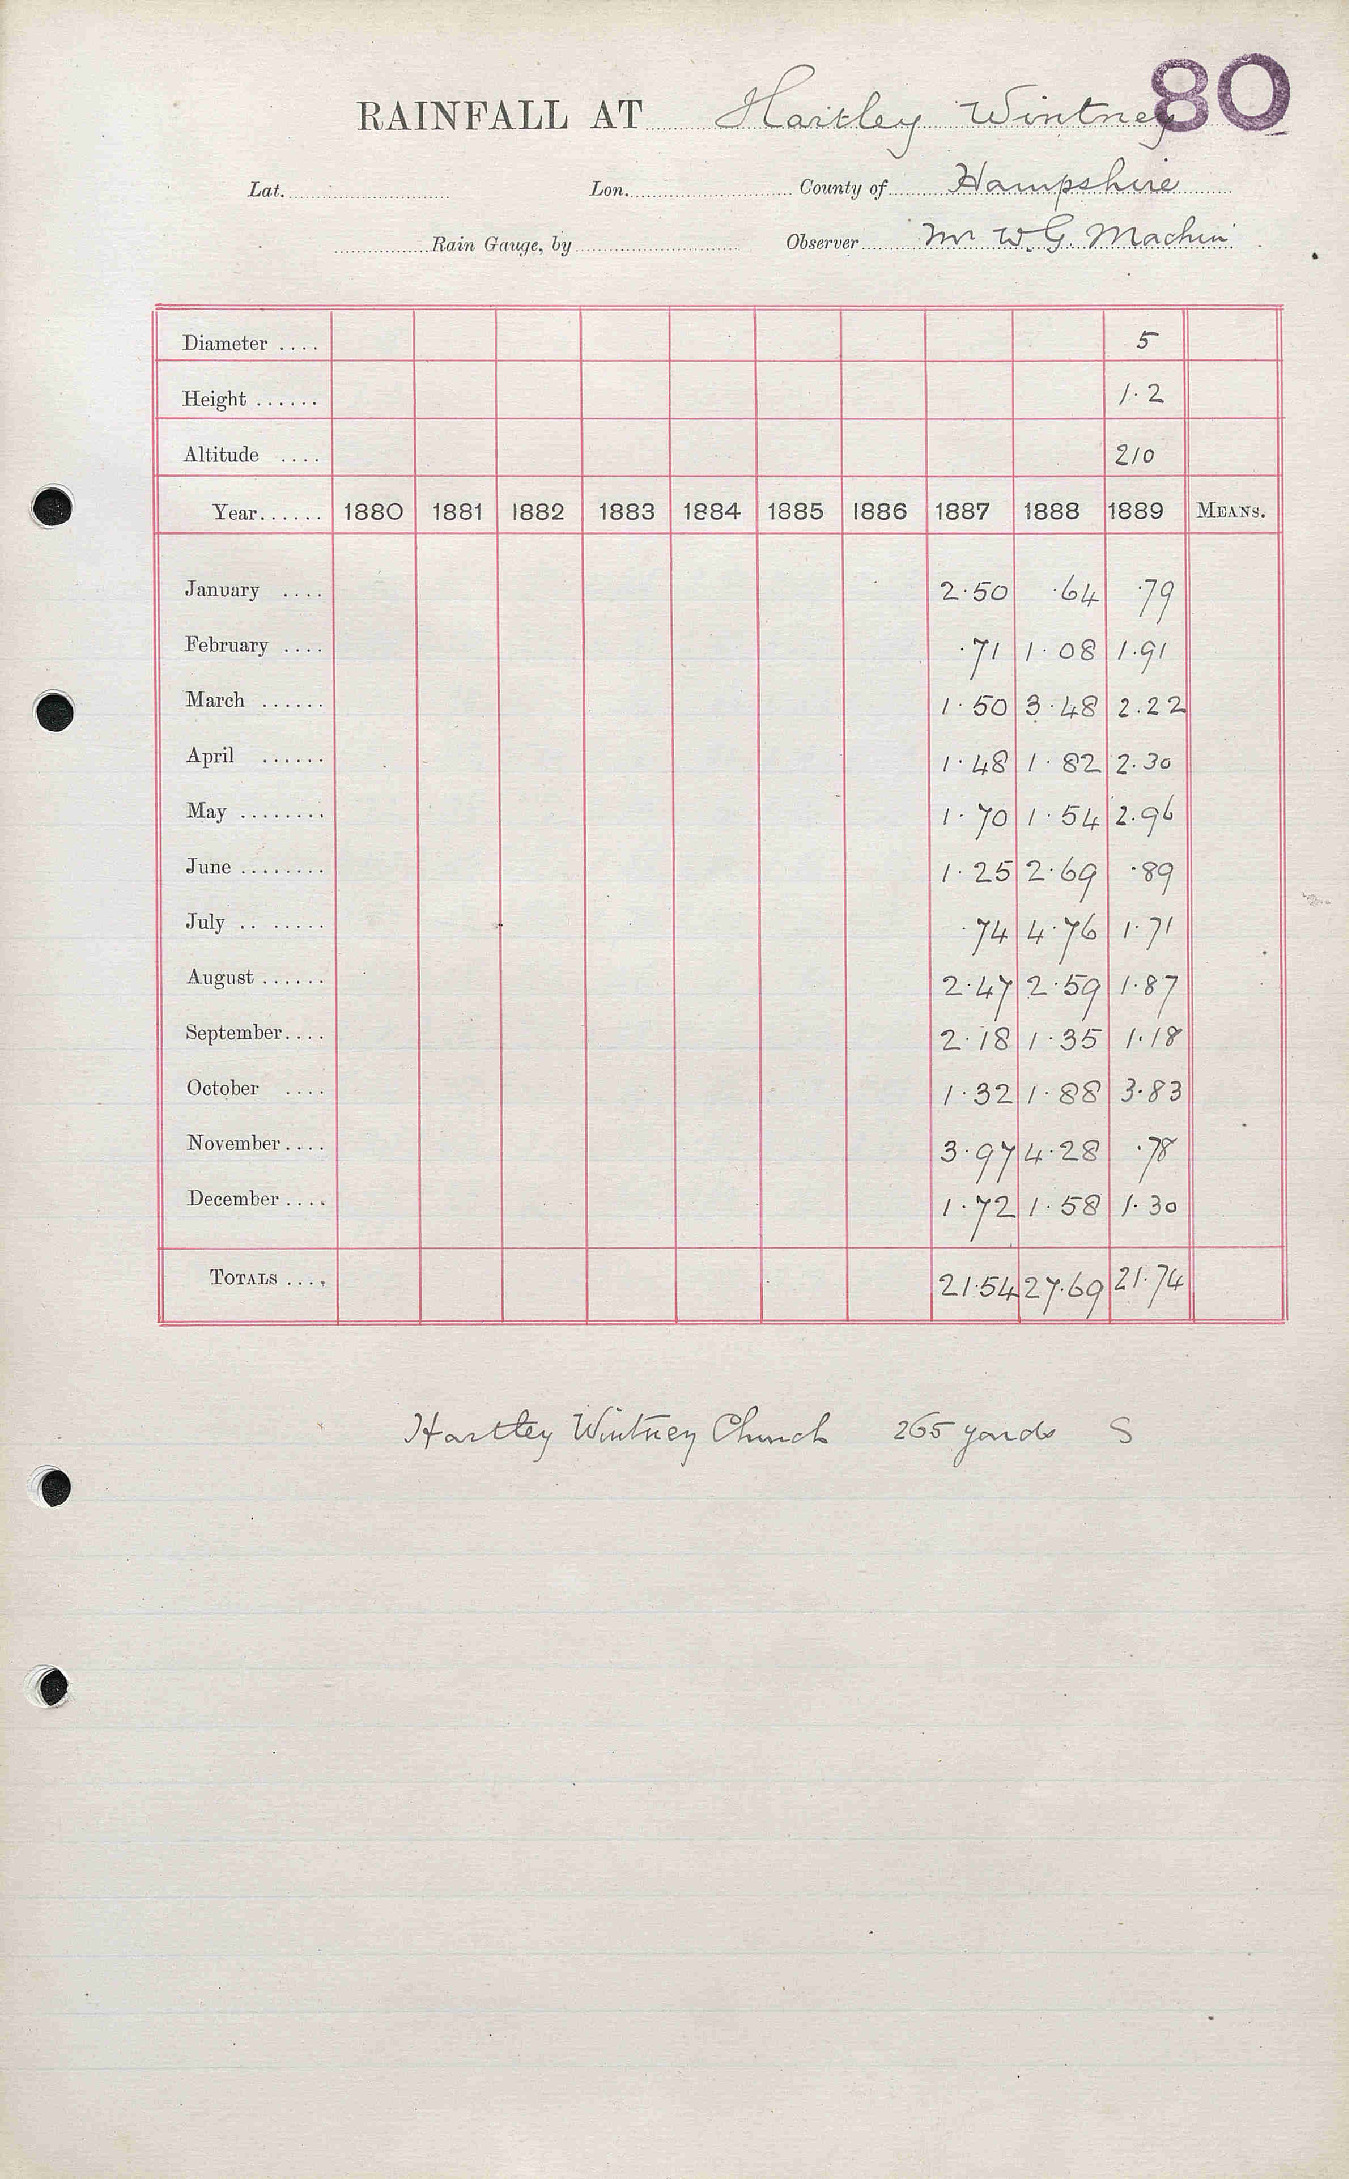 80
RAINFALL AT Hartley Wintney
Lat. Lon. County of Hampshire
Rain Gauge, by Observer Mr W. G. Machin
Diameter .... 5
Height ...... 1.2
Altitude .... 210
Year ...... 1880 1881 1882 1883 1884 1885 1886 1887 1888 1889 MEANS.
January .... 2.50 .64 .79
February .... .71 1.08 1.91
March ...... 1.50 3.48 2.22
April ...... 1.48 1.82 2.30
May ........ 1.70 1.54 2.96
June ........ 1.25 2.69 .89
July .. ...... .74 4.76 1.71
August ...... 2.47 2.59 1.87
September .... 2.18 1.35 1.18
October .... 1.32 1.88 3.83
November .... 3.97 4.28 .78
December .... 1.72 1.58 1.30
TOTALS .... 21.54 27.69 21.74
Hartley Wintney Church 265 yards S